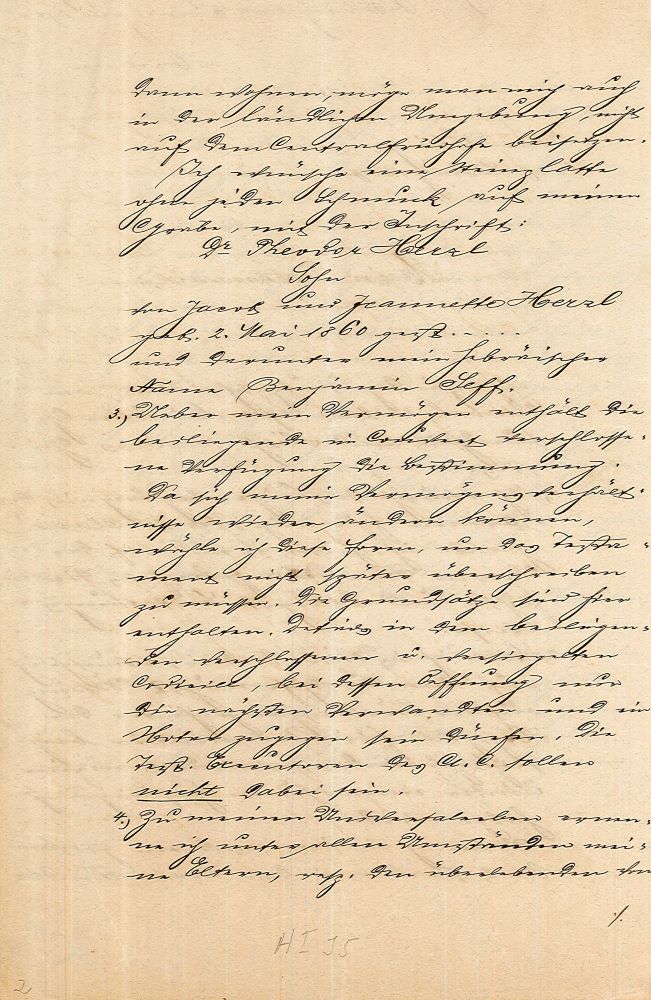 dann wohnen, möge man mich auch
in der ländlichen Umgebung, nicht
auf dem Centralfriedhofe beisetzen.
Ich wünsche eine Steinplatte
ohne jeden Schmuck auf meinem
Grabe, mit der Inschrift:
Dr. Theodor Herzl
Sohn
von Jacob und Jeannette Herzl
geb. 2. Mai 1860 gest. . . . .
und darunter mein hebräischer
Name Benjamin Seff.
3.) Ueber mein Vermögen enthält die
beiliegende in Couvert verschlosse-
ne Verfügung die Bestimmung.
Da sich meine Vermögensverhält-
nisse wieder ändern können,
wähle ich diese Form, um das Testa-
ment nicht später überschreiben
zu müssen. Die Grundsätze sind hier
enthalten. Details in dem beiliegen-
den verschlossenen u. versiegelten
Codicill, bei dessen Oeffnung nur
die nächsten Verwandten und ein
Notar zugegen sein dürfen. Die
Test. Executoren des A. C. sollen
nicht dabei sein.
4.) Zu meinen Universalerben ernen-
ne ich unter allen Umständen mei-
ne Eltern, resp. den überlebenden von
./.
H I J5
2